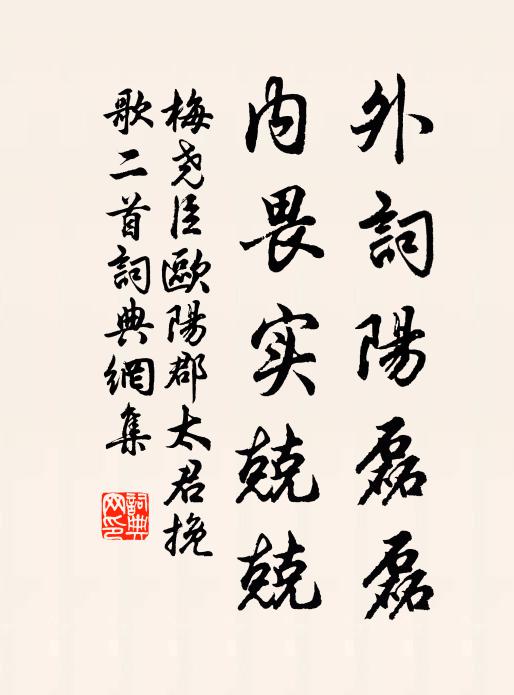 外詞陽磊磊
内畏实兢兢
梅尧臣歐陽郡太君挽
歌二首詞典網集
詞典網印